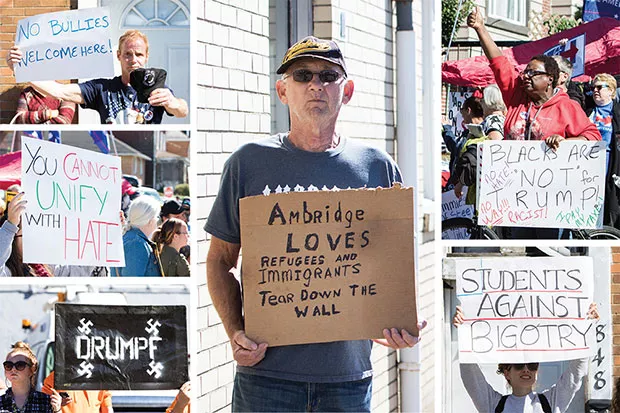 NO BULLIES
WELCOME HERE!
YOU CANNOT
UNIFY
WITH
HATE
DRUMPF
Ambridge
LOVES
REFUGEES AND
IMMIGRANTS
TEAR DOWN THE
WALL
BLACKS ARE
NO HATE!
"NOT" for
RUMP!
NO
RACIST!
STUDENTS
AGAINST
BIGOTRY
848